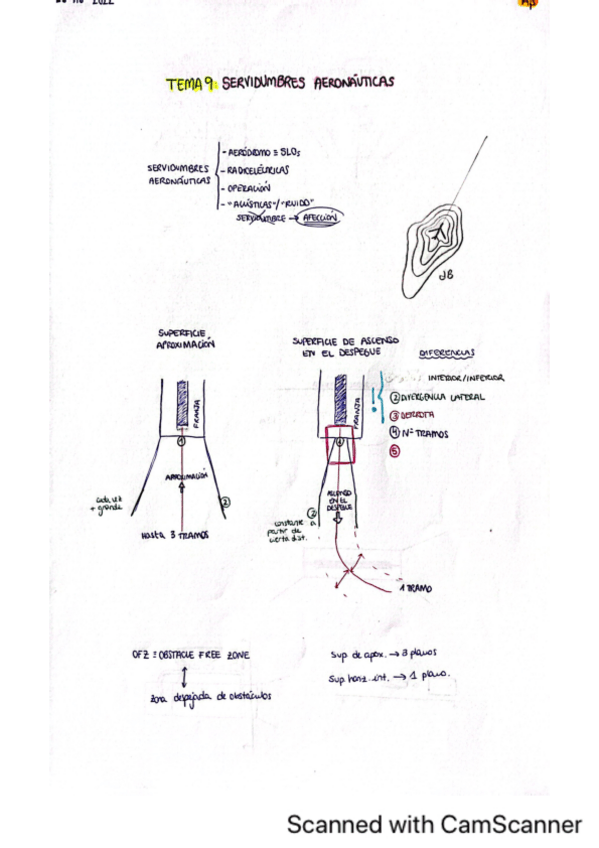 2022
TEMA 9: SERVIDUMBRES AERONÁUTICAS
SERVIDUMBRES AERONÁUTICAS
- AERÓDROMO ≡ SLOs
- RADIOELÉCTRICAS
- OPERACIÓN
- "ACÚSTICAS"/"RUIDO"
SERVIDUMBRE → AFECCIÓN
dB
SUPERFICIE APROXIMACIÓN
FRANJA
1
APROXIMACIÓN
cada vez + grande
2
Hasta 3 TRAMOS
SUPERFICIE DE ASCENSO
EN EL DESPEGUE
FRANJA
1
ASCENSO
EN EL
DESPEGUE
2
constante a
partir de
cierta dist.
1 TRAMO
DIFERENCIAS
INTERIOR/INFERIOR
2 DIVERGENCIA LATERAL
3 DERROTA
4 Nº TRAMOS
5
OFZ ≡ OBSTACLE FREE ZONE
zona despejada de obstáculos
Sup de apox. → 3 planos
Sup horiz. int. → 1 plano.
Scanned with CamScanner